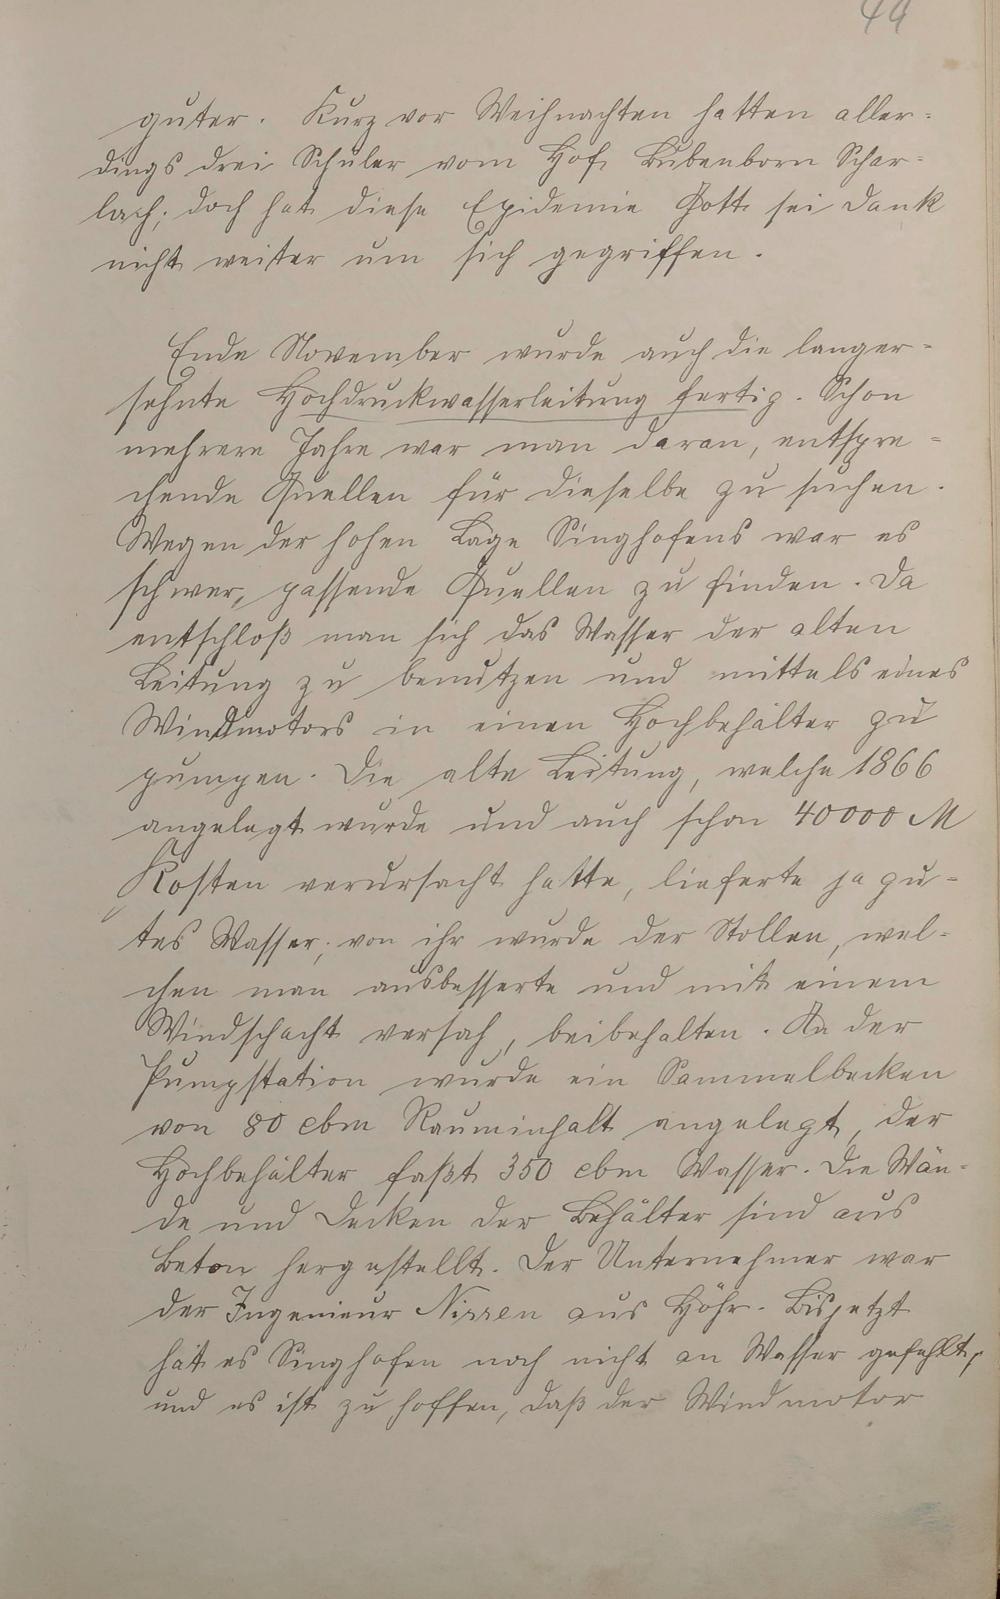 44
guter. Kurz vor Weihnachten hatten aller-
dings drei Schüler vom Hof Bubenborn Schar-
lach; doch hat diese Epidemie Gott sei Dank
nicht weiter um sich gegriffen.
Ende November wurde auch die langer-
sehnte Hochdruckwasserleitung fertig. Schon
mehrere Jahre war man daran, entspre-
chende Quellen für dieselbe zu suchen.
Wegen der hohen Lage Singhofens war es
schwer, passende Quellen zu finden. Da
entschloß man sich das Wasser der alten
Leitung zu benutzen und mittels eines
Windmotors in einen Hochbehälter zu
pumpen. Die alte Leitung, welche 1866
angelegt wurde und auch schon 40000 M
Kosten verursacht hatte, lieferte ja gu-
tes Wasser; von ihr wurde der Stollen, wel-
chen man ausbesserte und mit einem
Windschacht versah, beibehalten. An der
Pumpstation wurde ein Sammelbecken
von 80 cbm Rauminhalt angelegt, der
Hochbehälter faßt 350 cbm Wasser. Die Wän-
de und Decken der Behälter sind aus
Beton hergestellt. Der Unternehmer war
der Ingenieur Nissen aus Höhr. Bis jetzt
hat es Singhofen noch nicht an Wasser gefehlt,
und es ist zu hoffen, daß der Windmotor